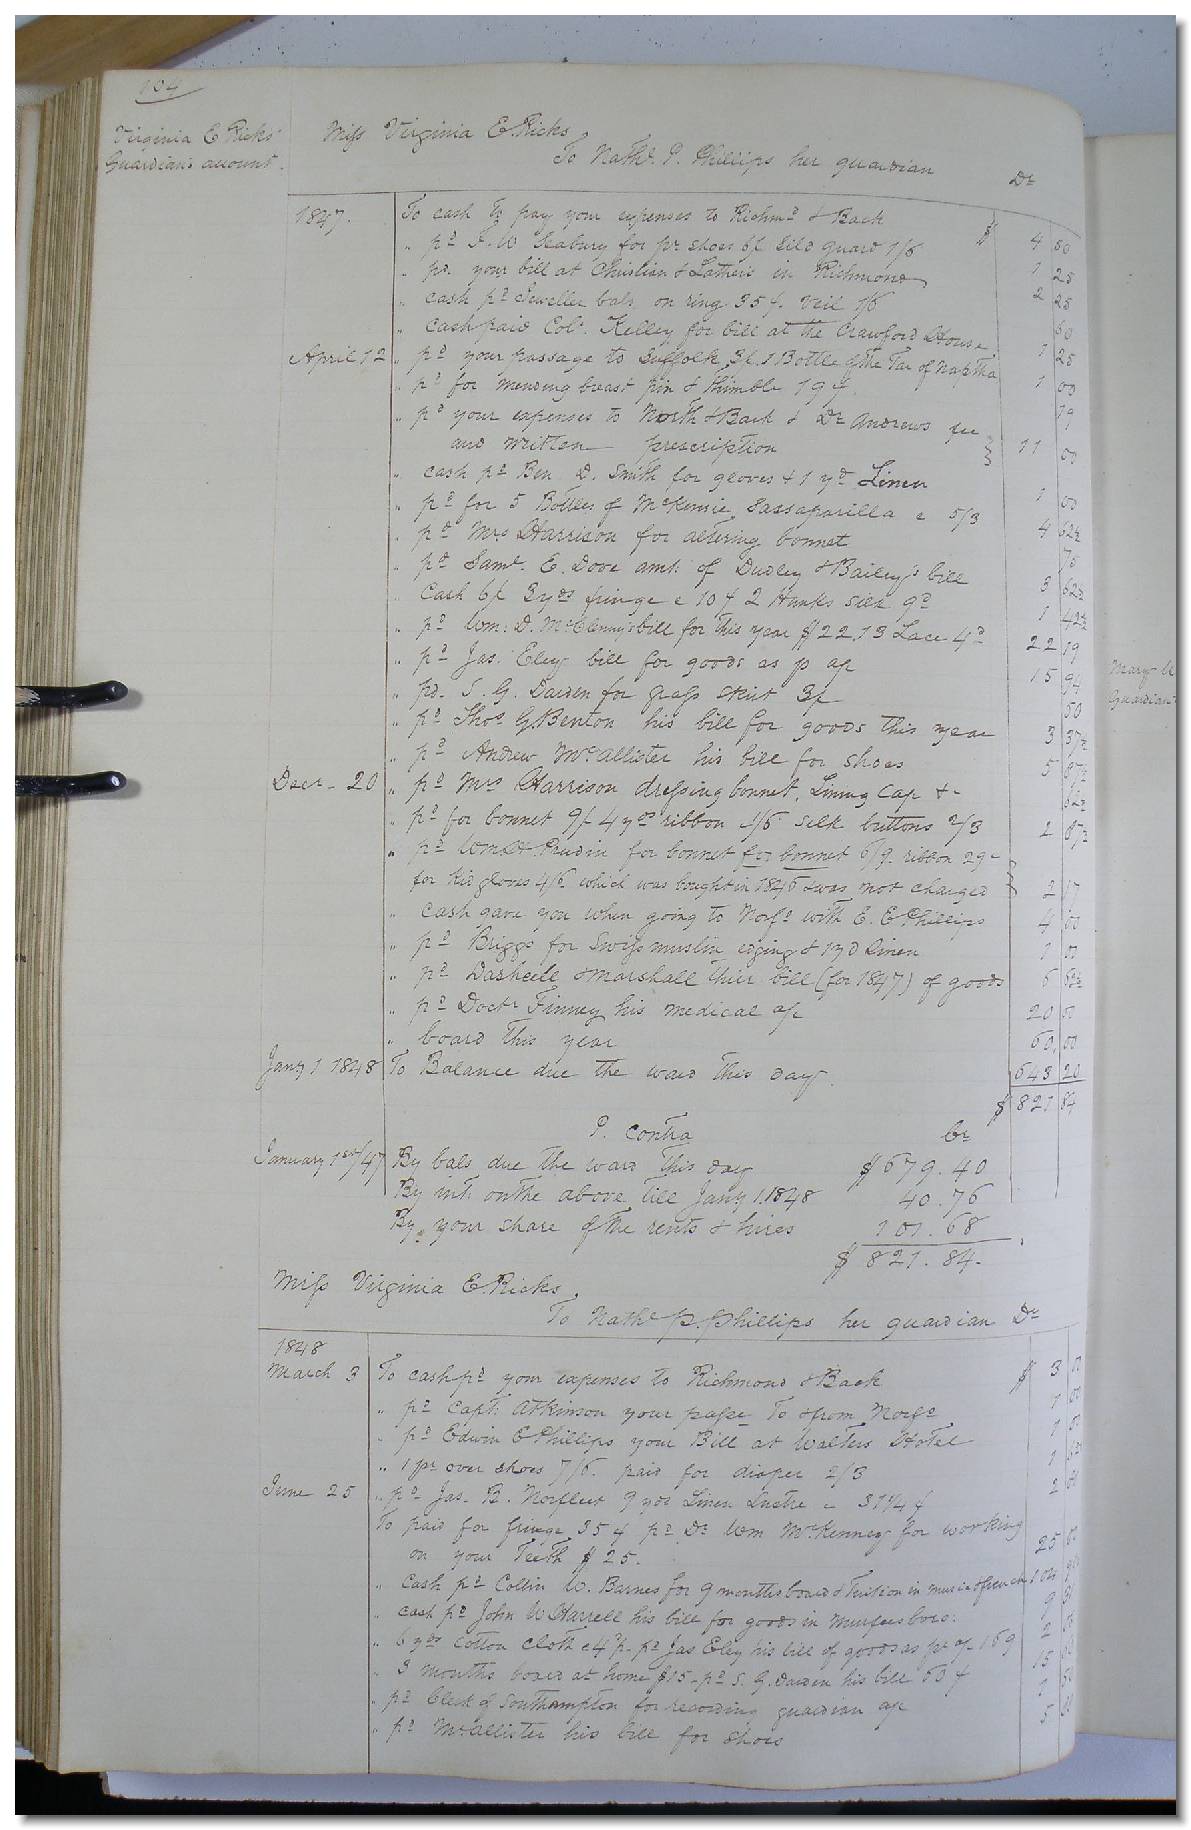 104
Virginia E Ricks'
Guardian's account.
Miss Virginia E. Ricks
To Nathl. P. Phillips her guardian Dr
1847. To cash to pay your expenses to Richmd & Back $ 4 50
" pd J. W Seabury for pr shoes 6/ Gild guard 1/6 1 25
" pd. your bill at Christian & Lathers in Richmond 2 25
" cash pd Jeweller bals on ring 35¢. veil 1/6 60
" cash paid Col. Kelley for bill at the Crawford House 1 25
April 12 " pd your passage to Suffolk 3/. 1 Bottle of the Tar of Naptha 1 00
" pd for mending breast pin & Thimble 19¢. 19
" pd your expenses to North & Back & Dr Andrews fee
and written prescription 11 00
" cash pd Ben D. Smith for gloves & 1 yd Linen 1 00
" pd for 5 Bottles of McKensie Sassaparilla @ 5/3 4 62½
" pd Mrs Harrison for altering bonnet 75
" pd Saml. E. Dove amt. of Dudley & Bailey's bill 3 62½
" Cash 6/ 3 yds fringe @ 10¢ 2 Hanks silk 9d 1 42½
" pd Wm. D. McClenny's bill for this year $22.13 Lace 4d 22 19
" pd Jas. Eley bill for goods as p ac 15 94
" pd. S. G. Darden for grass skirt 3/ 50
" pd Thos. G Benton his bill for goods this year 3 37½
" pd Andrew McAllister his bill for shoes 5 87½
Decr. 20 " pd Mrs Harrison dressing bonnet, Lining Cap &c 62½
" pd for bonnet 9/ 4 yds ribbon 1/6 silk buttons 2/3 2 87½
" pd Wm Prudin for bonnet for bonnet 6/9. ribbon 29c
for kid gloves 4/6 which was bought in 1846 & was not charged 2 17
" cash gave you when going to Norfo with E. E Phillips 4 00
" pd Briggs for Swiss muslin edging & 1 yd Linen 1 00
" pd Dashiell & Marshall their bill (for 1847) of goods 6 62½
" pd Doctr Finney his medical a/c 20 00
" board this year 60, 00
Jany 1 1848 To Balance due the ward this day. 643 20
$ 821 84
P. Contra Cr
January 1st/47 By bals due the ward this day $679.40
By int. on the above till Jany 1.1848 40.76
By your share of the rents & hires 101.68
$ 821.84.
Miss Virginia E. Ricks,
To Nathl P. Phillips her guardian Dr
1848
March 3 To cash pd your expenses to Richmond & Back $ 3 00
" pd Capt. Atkinson your passe To & from Norfo 1 00
" pd Edwin E Phillips your Bill at Walters Hotel 1 00
" 1 pr over shoes 7/6. paid for diaper 2/3 1
June 25 " pd Jas. B. Norfleet 9 yds Linen Lustre @ 31¼¢ 2
To paid for fringe 35¢ pd Dr Wm McKenney for working
on your Teeth $25. 25
" Cash pd Collin W. Barnes for 9 months board & Tuition in music
" cash pd John W Harrell his bill for goods in Murfeesboro: 9
" 6 yds cotton cloth @ 4d/. pd Jas Eley his bill of goods as pr ac 169 2
" 3 months board at home $15. pd S. G. Darden his bill 60¢ 15
" pd Clerk of Southampton for recording guardian ac 1
" pd McAllister his bill for shoes 5
Mary
Guardian